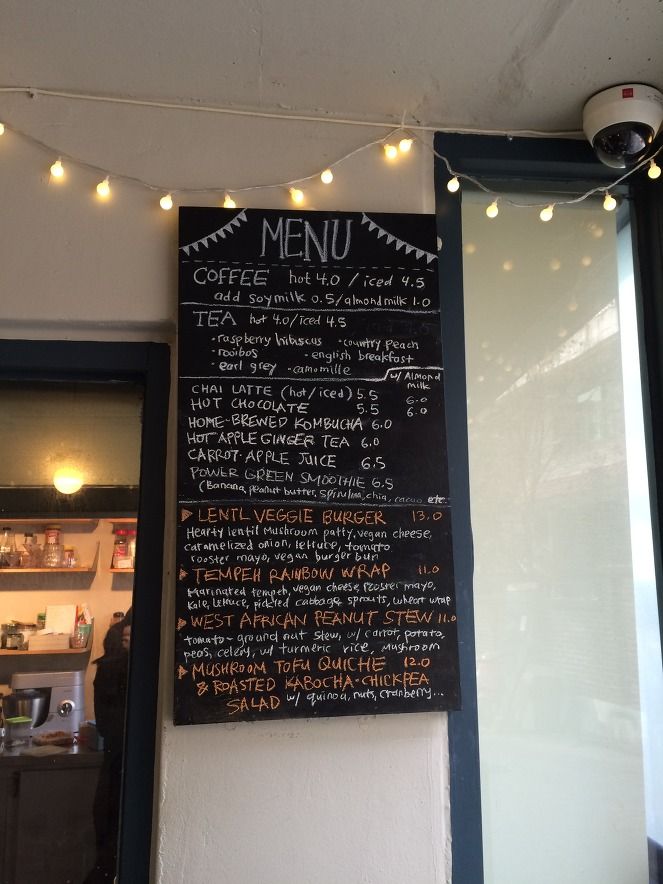 MENU
COFFEE hot 4.0 / iced 4.5
add soymilk 0.5/almondmilk 1.0
TEA hot 4.0/iced 4.5
•raspberry hibiscus •country peach
•rooibos •english breakfast
•earl grey •camomille
w/ Almond milk
CHAI LATTE (hot/iced) 5.5 6.0
HOT CHOCOLATE 5.5 6.0
HOME-BREWED KOMBUCHA 6.0
HOT APPLE GINGER TEA 6.0
CARROT-APPLE JUICE 6.5
POWER GREEN SMOOTHIE 6.5
(Banana, peanut butter, spirulina, chia, cacao etc.
LENTL VEGGIE BURGER 13.0
Hearty lentil mushroom patty, vegan cheese,
caramelized onion, lettuce, tomato
rooster mayo, vegan burger bun
TEMPEH RAINBOW WRAP 11.0
Marinated tempeh, vegan cheese, rooster mayo,
kale, lettuce, pickled cabbage, sprouts, wheat wrap
WEST AFRICAN PEANUT STEW 11.0
tomato-ground nut stew, w/ carrot, potato,
peas, celery, w/ turmeric rice, mushroom
MUSHROOM TOFU QUICHE 12.0
& ROASTED KABOCHA-CHICKPEA
SALAD w/ quinoa, nuts, cranberry...